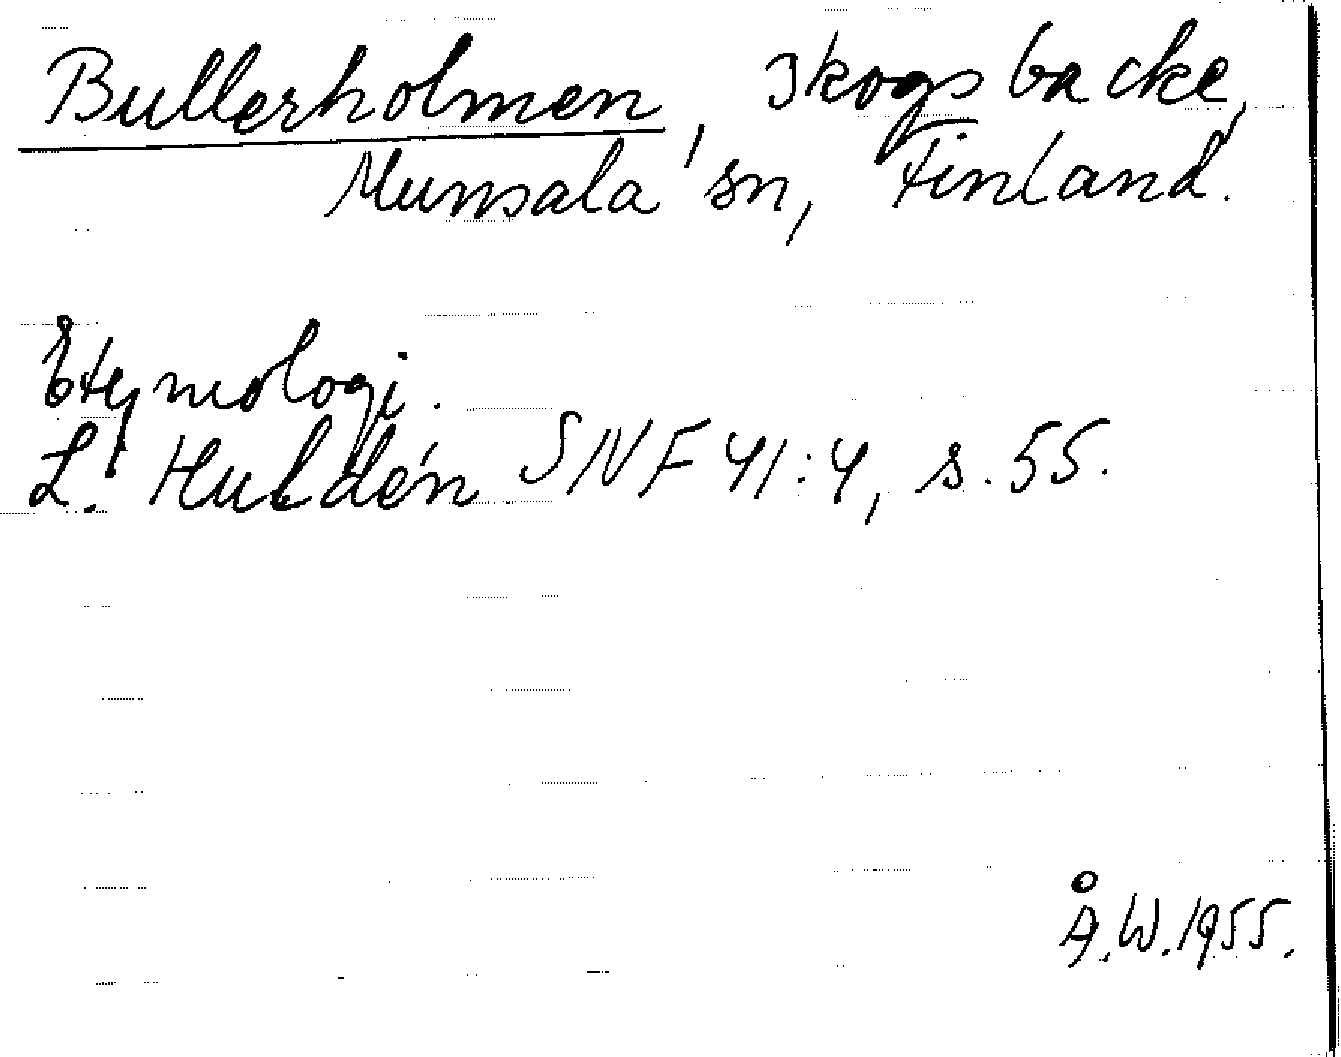 Bullerholmen, skogsbacke,
Munsala sn, Finland.
Etymologi.
L. Huldén SNF 41:4, s. 55.
Å.W. 1955.